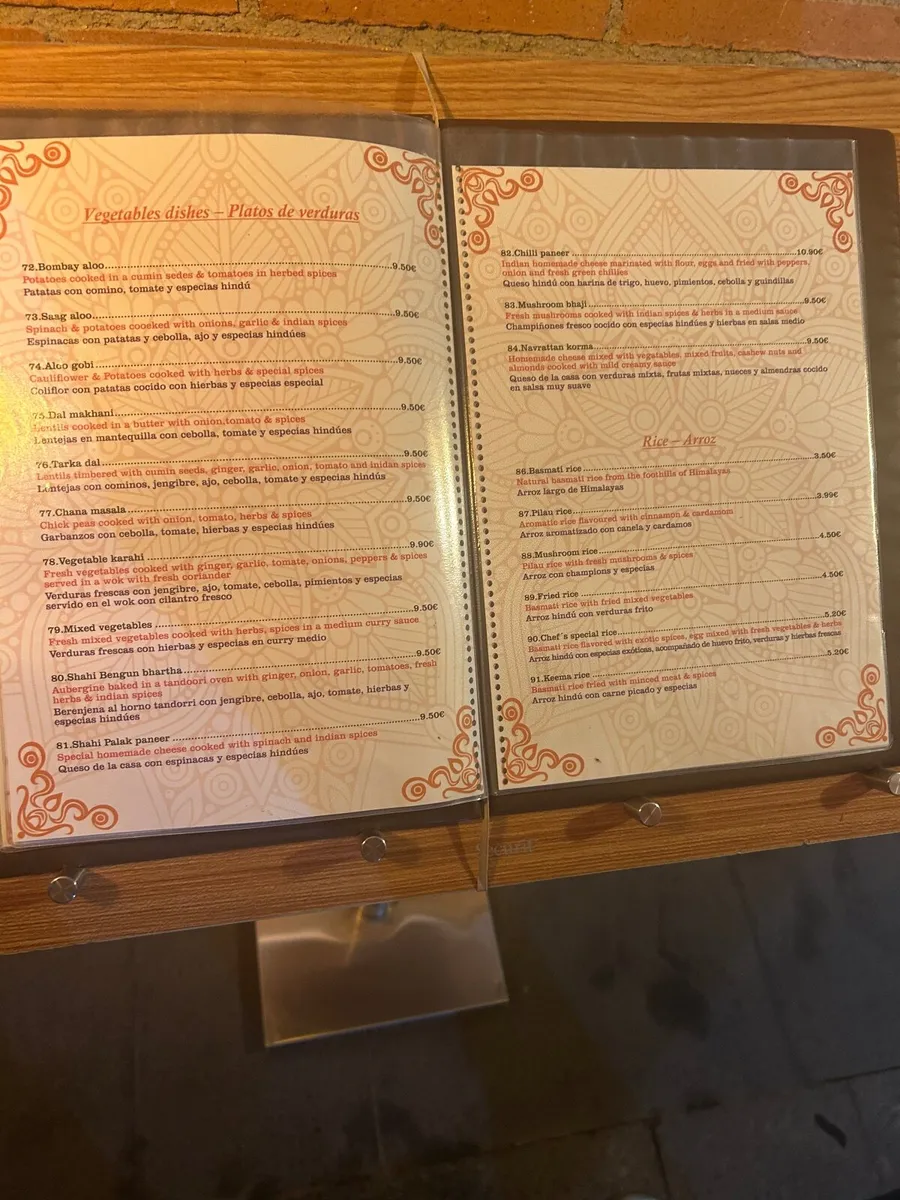 Vegetables dishes – Platos de verduras
72.Bombay aloo...9.50€
Potatoes cooked in a cumin sedes & tomatoes in herbed spices
Patatas con comino, tomate y especias hindú
73.Saag aloo...9.50€
Spinach & potatoes coocked with onions, garlic & indian spices
Espinacas con patatas y cebolla, ajo y especias hindúes
74.Aloo gobi...9.50€
Cauliflower & Potatoes cooked with herbs & special spices
Coliflor con patatas cocido con hierbas y especias especial
75.Dal makhani...9.50€
Lentils cooked in a butter with onion,tomato & spices
Lentejas en mantequilla con cebolla, tomate y especias hindúes
76.Tarka dal...9.50€
Lentils timbered with cumin seeds, ginger, garlic, onion, tomato and inidan spices
Lentejas con cominos, jengibre, ajo, cebolla, tomate y especias hindús
77.Chana masala...9.50€
Chick peas cooked with onion, tomato, herbs & spices
Garbanzos con cebolla, tomate, hierbas y especias hindúes
78.Vegetable karahi...9.90€
Fresh vegetables cooked with ginger, garlic, tomate, onions, peppers & spices
served in a wok with fresh coriander
Verduras frescas con jengibre, ajo, tomate, cebolla, pimientos y especias
servido en el wok con cilantro fresco
79.Mixed vegetables...9.50€
Fresh mixed vegetables cooked with herbs, spices in a medium curry sauce
Verduras frescas con hierbas y especias en curry medio
80.Shahi Bengun bhartha...9.50€
Aubergine baked in a tandoori oven with ginger, onion, garlic, tomatoes, fresh
herbs & indian spices
Berenjena al horno tandorri con jengibre, cebolla, ajo, tomate, hierbas y
especias hindúes
81.Shahi Palak paneer...9.50€
Special homemade cheese cooked with spinach and indian spices
Queso de la casa con espinacas y especias hindúes
82.Chilli paneer...10.90€
Indian homemade cheese marinated with flour, eggs and fried with peppers,
onion and fresh green chillies
Queso hindú con harina de trigo, huevo, pimientos, cebolla y guindillas
83.Mushroom bhaji...9.50€
Fresh mushrooms cooked with indian spices & herbs in a medium sauce
Champiñones fresco cocido con especias hindúes y hierbas en salsa medio
84.Navrattan korma...9.50€
Homemade cheese mixed with vegatables, mixed fruits, cashew nuts and
almonds cooked with mild creamy sauce
Queso de la casa con verduras mixta, frutas mixtas, nueces y almendras cocido
en salsa muy suave
Rice – Arroz
86.Basmati rice...3.50€
Natural basmati rice from the foothills of Himalayas
Arroz largo de Himalayas
87.Pilau rice...3.99€
Aromatic rice flavoured with cinnamon & cardamom
Arroz aromatizado con canela y cardamos
88.Mushroom rice...4.50€
Pilau rice with fresh mushrooms & spices
Arroz con champions y especias
89.Fried rice...4.50€
Basmati rice with fried mixed vegetables
Arroz hindú con verduras frito
90.Chef´s special rice...5.20€
Basmati rice flavored with exotic spices, egg mixed with fresh vegetables & herbs
Arroz hindú con especias exóticas, acompañado de huevo frito, verduras y hierbas frescas
91.Keema rice...5.20€
Basmati rice fried with minced meat & spices
Arroz hindú con carne picado y especias